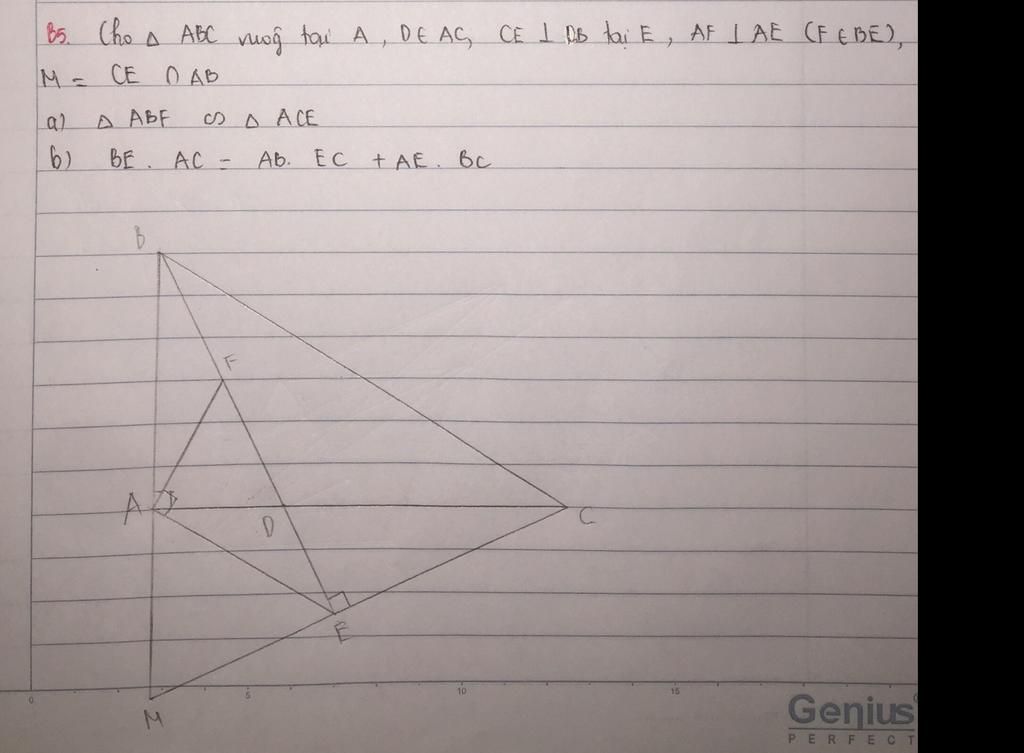 B5. Cho △ ABC vuôg tại A, D∈AC, CE ⊥ DB tại E, AF ⊥ AE (F∈BE),
M = CE ∩ AB
a) △ ABF ∽ △ ACE
b) BE. AC = AB. EC + AE. BC
B
F
A
D
C
E
M
0 5 10 15
Genius
PERFECT